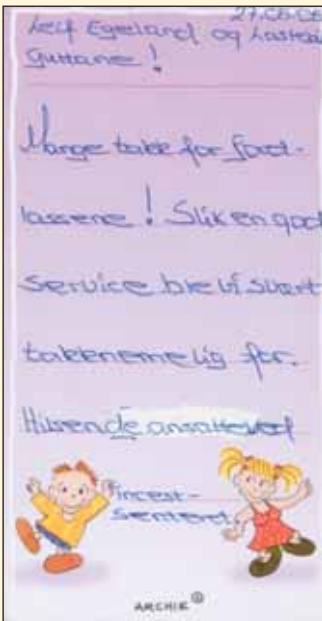 27.06.06
Leif Egeland og Lastebil
Guttane!
Mange takk for flott-
lassene! Slik en god
service ble vi svært
takknemelig for.
Hilsen de ansatte ved
incest-
senteret.
ARCHIE ®